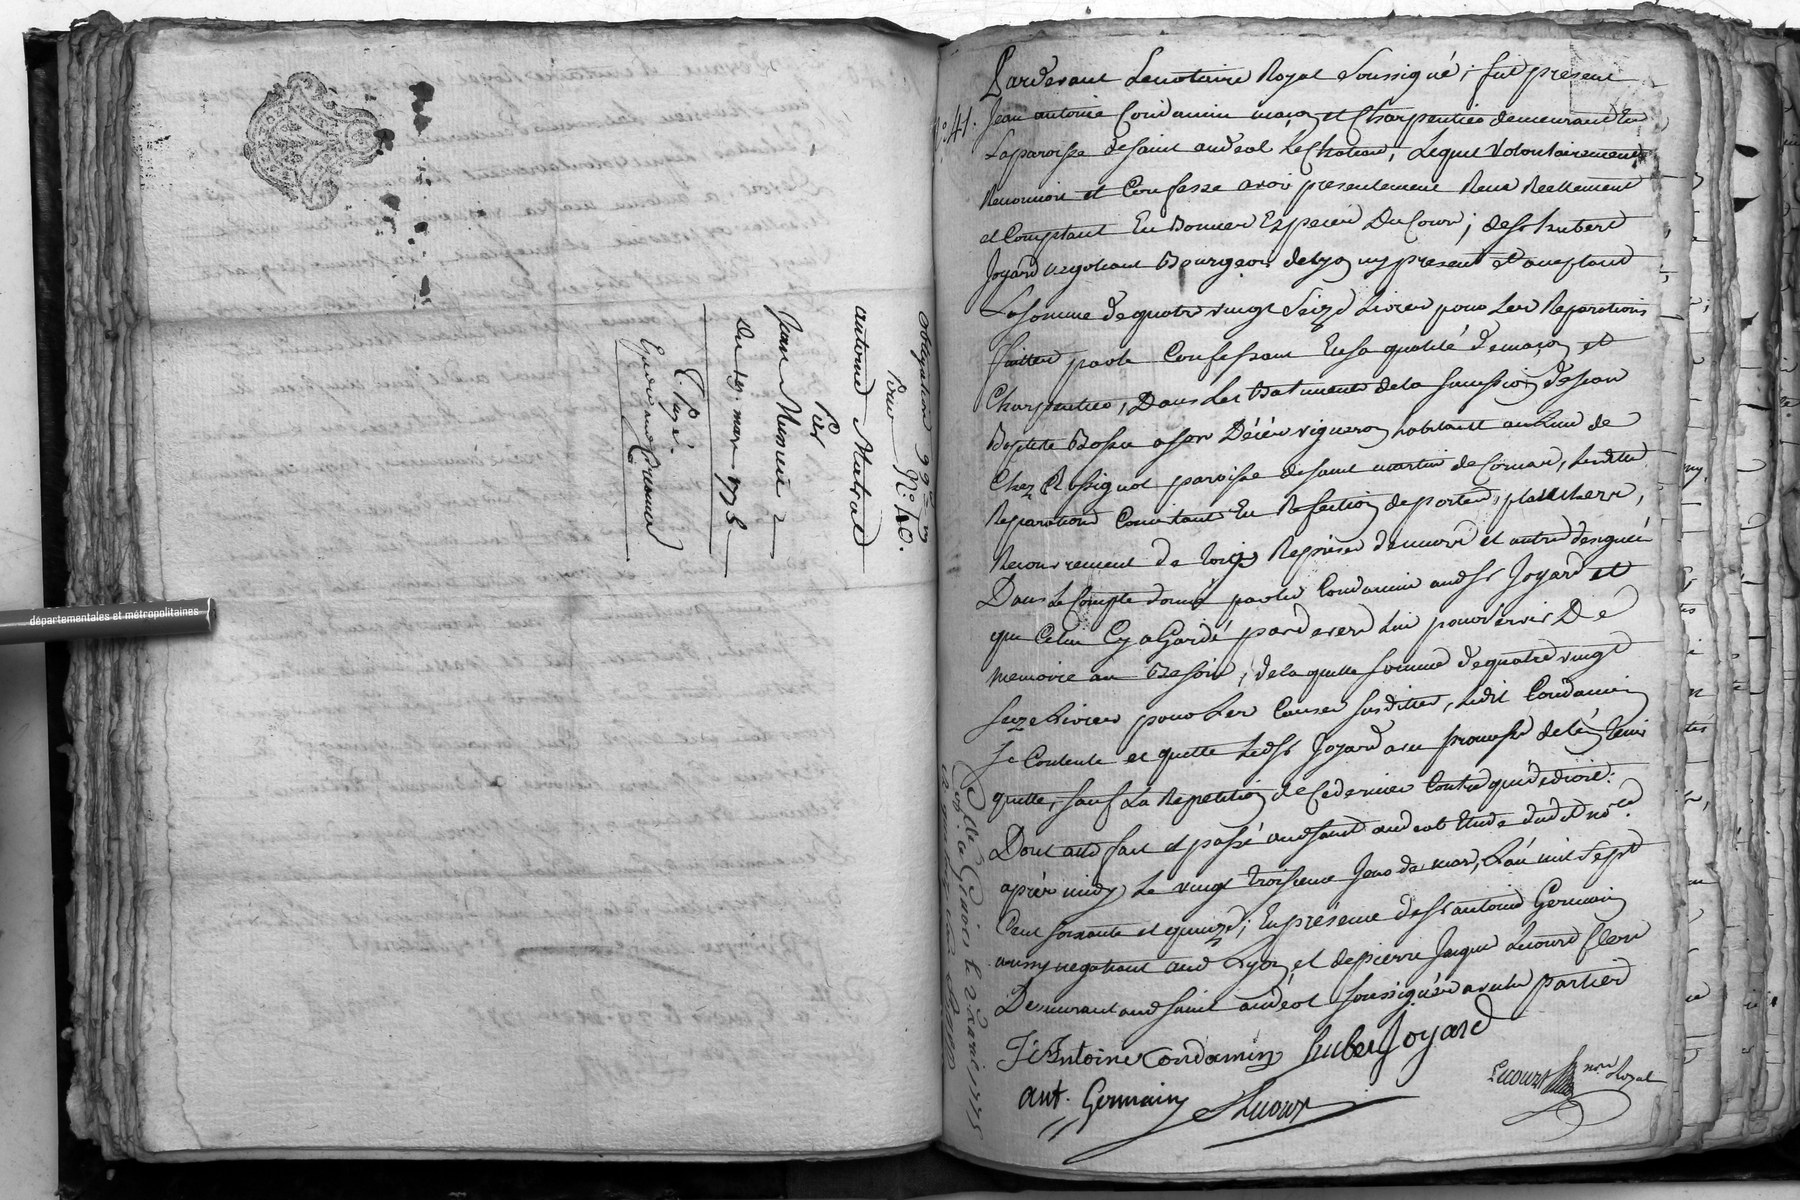 obligation 99tt
Pour N.° 40.
antoine Mutrat
Par
Jean Meunier
Du 19. mars 1775
Expé.
départementales et métropolitaines
N.° 41.
Pardevant Le notaire Royal Soussigné; fut present
Jean antoine Condamin maçon et Charpentier demeurant En
La paroisse de saint andeol le Chateau, Lequel Volontairement
Reconnoit et Confesse avoir presentement Recu Reellement
et Comptant En Bonnes Especes Du Cour; de sr hubert
Joyard negotiant Bourgeois de Lyon icy present et acceptant
La somme de quatre vingt Seize Livres pour Les Reparations
faittes par le Confessant En sa qualité de maçon et
Charpentier, Dans Les Batiments de la succession de Jean
Baptiste Bossu a son Décès vigneron habitant au Lieu de
Chez Rossignol paroisse de saint martin de Cornas, Lesdittes
Reparations Consistant En Refection de portes, planchers,
Recouvrement de Toits Reprises de murs et autres designés
Dans Le Compte donné par led Condamin aud sr Joyard et
que Celui Cy a Gardé pardevers Lui pour servir De
memoire au Besoin; de laquelle somme de quatre vingt
seize Livres pour Les Causes susdittes, Ledit Condamin
se Contente et quitte Led sr Joyard avec promesse de l'en tenir
quitte, sauf La Repetition de Ce dernier Contre qui de droit:
Dont acte fait et passé aud saint andeol Etude dudit nore
après midy Le vingt troisieme Jour de mars, L'an mil sept
Cent soixante et quinze; En presence de sr antoine Germain
aussy negotiant aud Lyon, et de pierre Jacque Lucourt Clerc
Demeurant aud saint andéol soussignés avec les parties
J: Antoine Condamin huber Joyard
ant. Germain Lucour
Lucourt nore Royal
Clle à Givors le 2 avril 1775